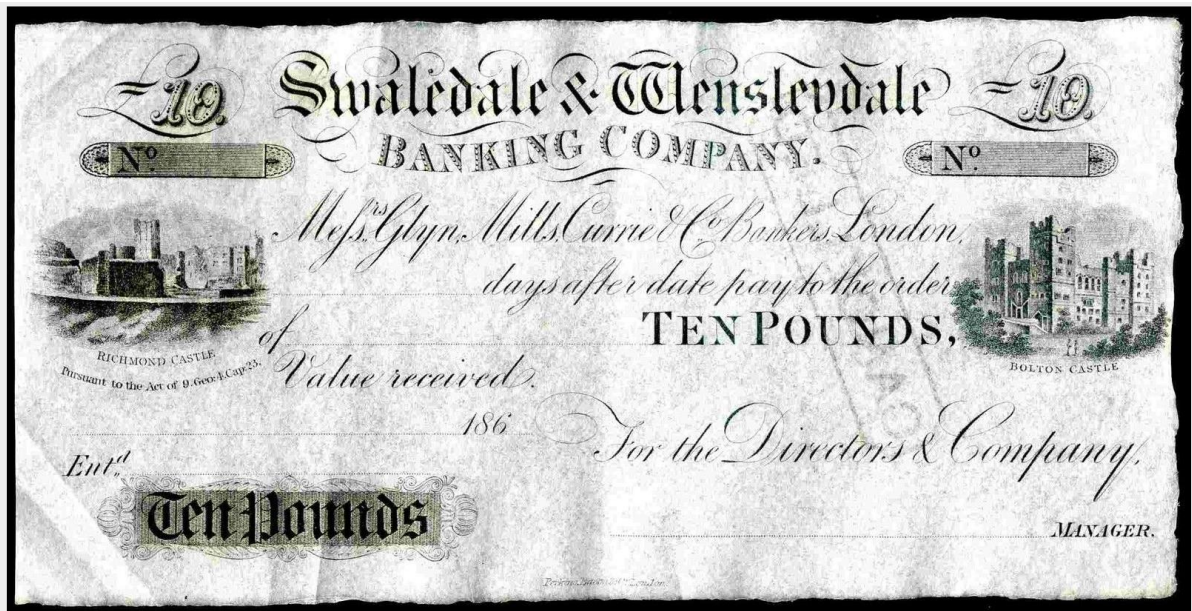 £10. Swaledale & Wensleydale £10.
BANKING COMPANY.
No. No.
Messrs. Glyn, Mills, Currie & Co. Bankers, London,
days after date pay to the order
of TEN POUNDS,
Value received.
RICHMOND CASTLE
Pursuant to the Act of 9. Geo: 4. Cap: 23.
BOLTON CASTLE
186
For the Directors & Company,
Entd.
Ten Pounds
MANAGER.
London